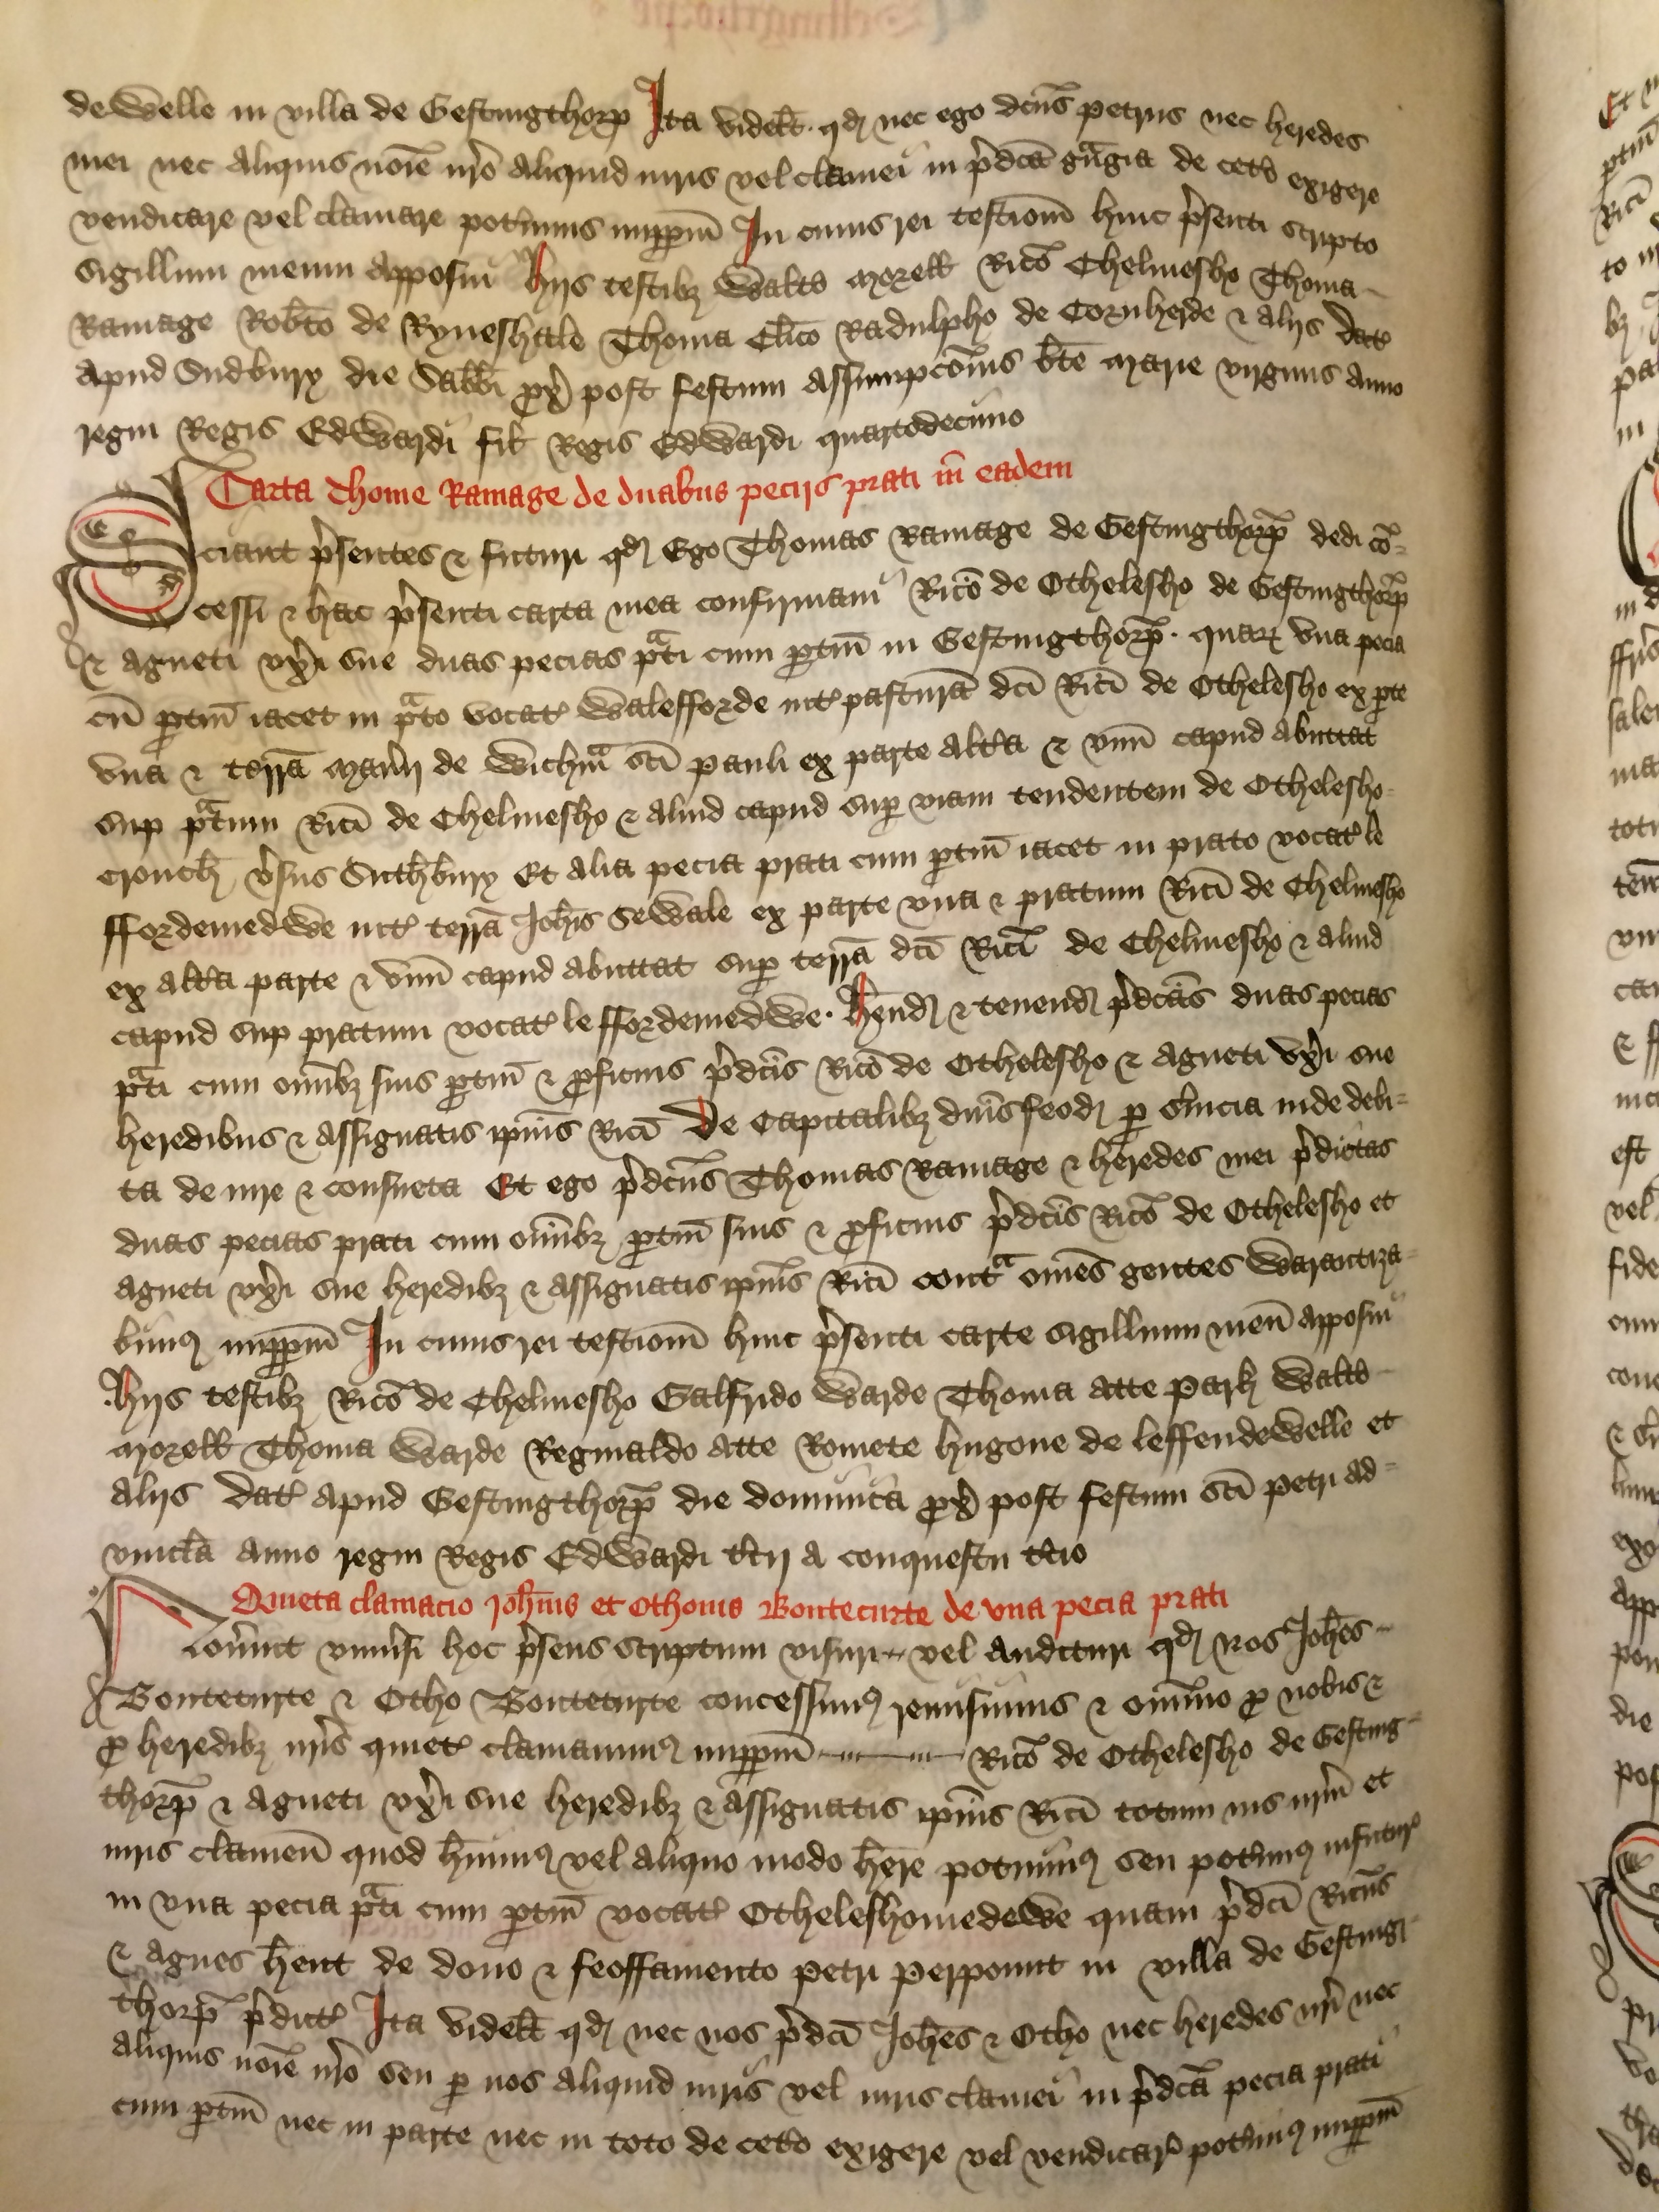 de Welle in villa de Gestingthorp Ita videlt. qd nec ego dcus petrus nec heredes
mei nec aliquis noie nro aliquid iuris vel clamei in pdca gngia de cetō exigere
vendicare vel clamare potimus imppm In cuius rei testiom huic psenti scripto
sigillum meum apposui Hijs testibz Waltō Morell Ricō Chelmesho Thoma
Ramage Robtō de Ryneshale Thoma Clīco Radulpho de Cornherde & alijs dat
apud Sudbury die Sabbi px post festum assumpcōnis bte Marie virginis anno
regni Regis Edwardi fil Regis Edwardi quartodecimo
Carta Thome Ramage de duabus pecijs prati in eadem
Sciant psentes & futuri qd Ego Thomas Ramage de Gestingthorp dedi cō=
cessi & hac psenti carta mea confirmaui Ricō de Othelesho de Gestingthorp
& agneti vxi sue duas pecias pati cum ptin in Gestingthorp. quarz vna pecia
cū ptin iacet in pato vocat Walefforde iuxt pasturā dcī Ricī de Othelesho ex pte
vna & terrā Manij de Wichma scī pauli ex parte altā & vnū capud abuttat
sup patum Ricī de Chelmesho & aliud capud sup viam tendentem de Othelesho
crouch vsus Suthbury Et alia pecia prati cum ptin iacet in prato vocat le
ffordemedwe iuxt terrā Johis Sewale ex parte vna & pratum Ricī de Chelmesho
ex altā parte & vnū capud abuttat sup terrā dcī Ricī de Chelmesho & aliud
capud sup pratum vocat le ffordemedwe. Hend & tenend pdcas duas pecias
pati cum omibz suis ptin & pficuis pdcis Ricō de Othelesho & agneti vxi sue
heredibus & assignatis ipius Ricī De Capitalibz dnis feod p suicia inde debi=
ta de iure & consueta Et ego pdcus Thomas Ramage & heredes mei pdictas
duas pecias prati cum omibz ptin suis & pficuis pdcis Ricō de Othelesho et
agneti vxi sue heredibz & assignatis ipius Ricī conta omes gentes Warantiza=
bimus imppm In cuius rei testiom huic psenti carte sigillum meū apposui
Hijs testibz Ricō de Chelmesho Galfrido Warde Thoma atte Park Waltō
Morell Thoma Warde Reginaldo atte Romete hugone de leffendewelle et
alijs Dat apud Gestingthorp die dominica px post festum scī Petri ad=
vincla anno regni Regis Edwardi tcij a conquestu tcio
Quieta clamacio Johnis et Othonis Bontecurte de vna pecia prati
Nouint vniusi hoc psens scriptum visuri vel audituri qd nos Johes
Bontecurte & Otho Bontecurte concessimus remisimus & omnino p nobis &
p heredibz nris quiet clamauimus imppm Ricō de Othelesho de Gesting=
thorp & agneti vxi sue heredibz & assignatis ipius Ricī totum ius nrm et
iuris clameū quod huimus vel aliquo modo here potuimus seu potimus in futur
in vna pecia pati cum ptin vocat Otheleshomedewe quam pdcī Ricus
& agnes hent de dono & feoffamento Petri Perpount in villa de Gesting=
thorp pdict Ita videlt qd nec nos pdcī Johes & Otho nec heredes nri nec
aliquis noie nro seu p nos aliquid iuris vel iuris clamei in pdca pecia prati
cum ptin nec in parte nec in toto de cetō exigere vel vendicar potimus imppm